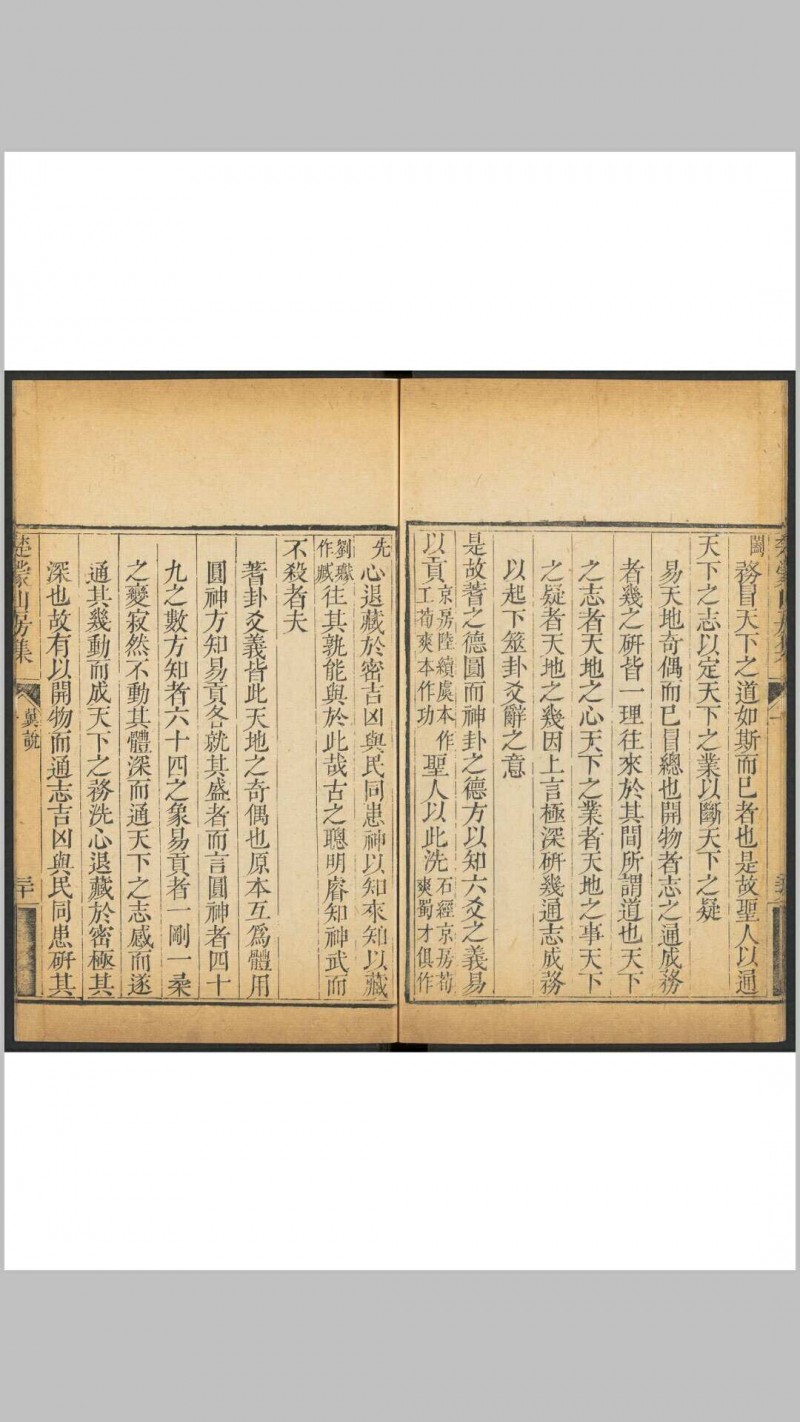 闓務冒天下之道如斯而已者也是故聖人以通
天下之志以定天下之業以斷天下之疑
易天地奇偶而已冒總也開物者志之通成務
者幾之研皆一理往來於其間所謂道也天下
之志者天地之心天下之業者天地之事天下
之疑者天地之幾因上言極深研幾通志成務
以起下筮卦爻辭之意
是故蓍之德圓而神卦之德方以知六爻之義易
以貢京房陸績虞本作工荀爽本作功聖人以此洗石經京房荀爽蜀才俱作
先心退藏於密吉凶與民同患神以知來知以藏
劉瓛作臧往其孰能與於此哉古之聰明睿知神武而
不殺者夫
蓍卦爻義皆此天地之奇偶也原本互爲體用
圓神方知易貢各就其盛者而言圓神者四十
九之數方知者六十四之象易貢者一剛一柔
之變寂然不動其體深而通天下之志感而遂
通其幾動而成天下之務洗心退藏於密極其
深也故有以開物而通志吉凶與民同患研其
楚蒙山房集
三十